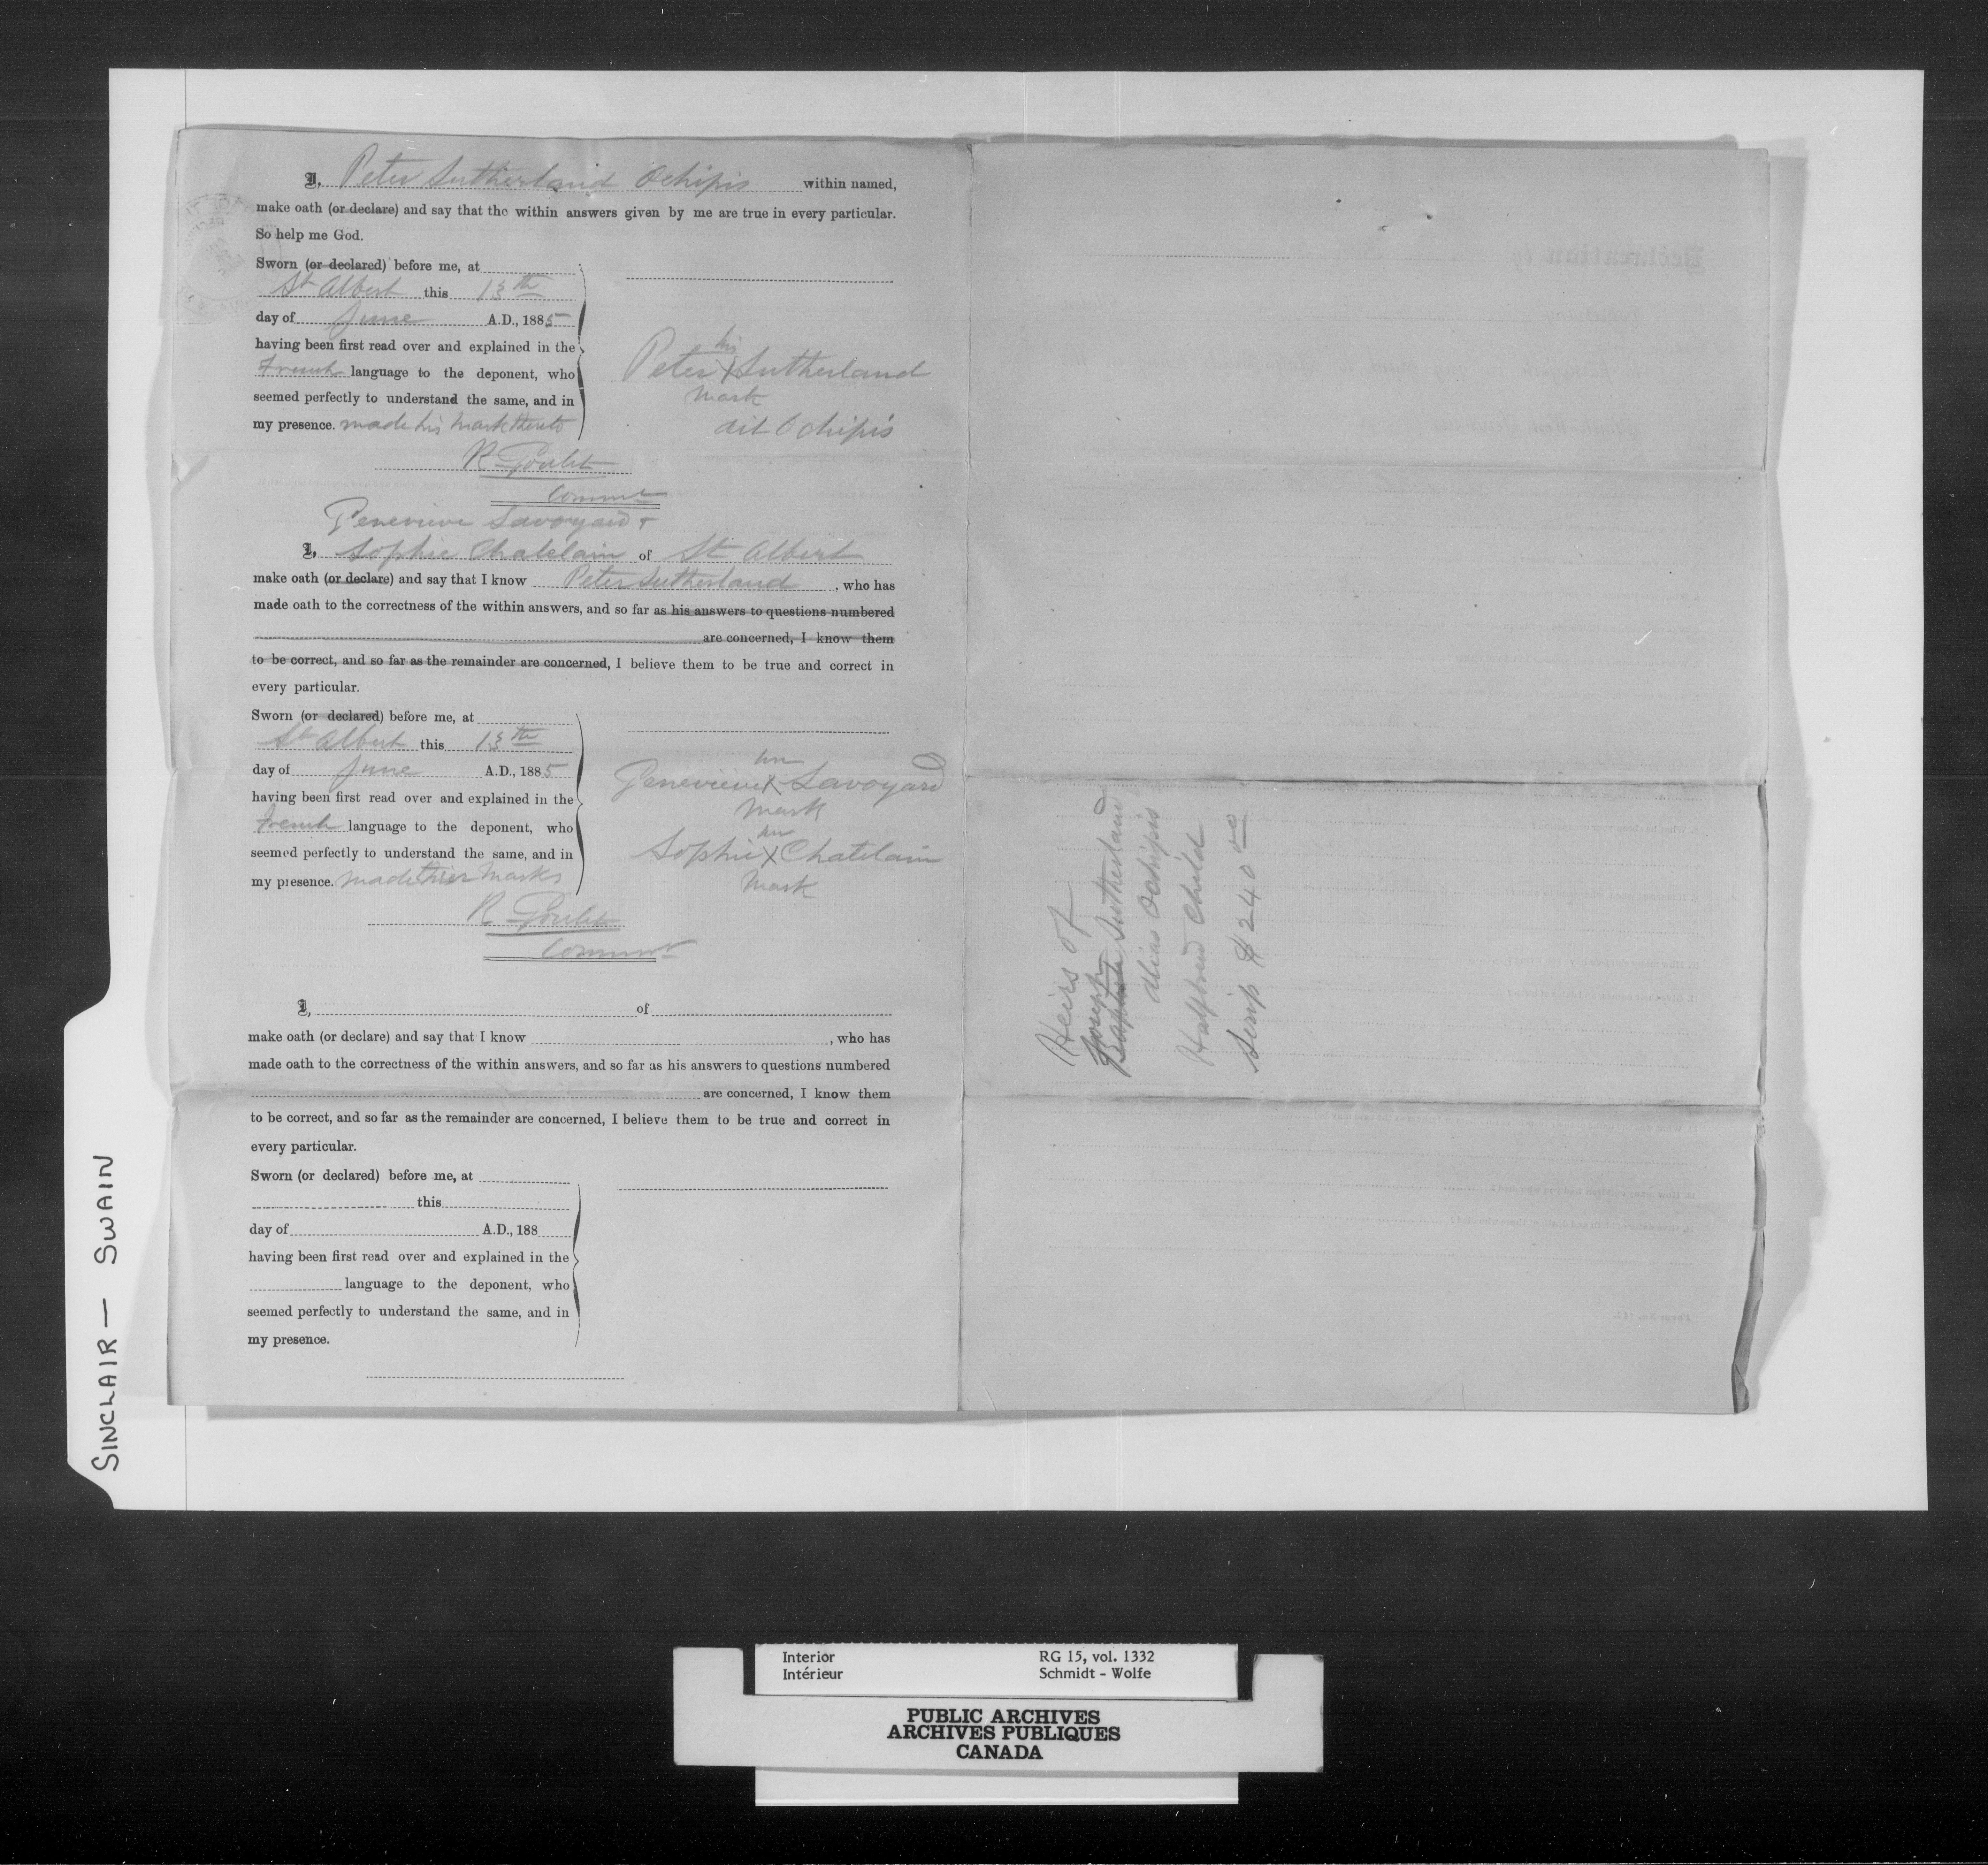 I, Peter Sutherland Ochipis within named,
make oath (or declare) and say that the within answers given by me are true in every particular.
So help me God.
Sworn (or declared) before me, at
St Albert this 13th
day of June A.D., 1885
having been first read over and explained in the
French language to the deponent, who
seemed perfectly to understand the same, and in
my presence. made his mark thereto
his
Peter X Sutherland
mark
dit Ochipis
R Goulet
Commr
Genevieve Savoyard +
I, Sophie Chatelain of St Albert
make oath (or declare) and say that I know Peter Sutherland, who has
made oath to the correctness of the within answers, and so far as his answers to questions numbered
are concerned, I know them
to be correct, and so far as the remainder are concerned, I believe them to be true and correct in
every particular.
Sworn (or declared) before me, at
St Albert this 13th
day of June A.D., 1885
having been first read over and explained in the
French language to the deponent, who
seemed perfectly to understand the same, and in
my presence. made their marks
her
Genevieve X Savoyard
mark
her
Sophie X Chatelain
mark
R Goulet
Commr
I, of
make oath (or declare) and say that I know , who has
made oath to the correctness of the within answers, and so far as his answers to questions numbered
are concerned, I know them
to be correct, and so far as the remainder are concerned, I believe them to be true and correct in
every particular.
Sworn (or declared) before me, at
this
day of A.D., 188
having been first read over and explained in the
language to the deponent, who
seemed perfectly to understand the same, and in
my presence.
Heirs of
Joseph
Baptiste Sutherland
alias Ochipis
Halfbreed Child
Scrip $240 00
SINCLAIR — SWAIN
Interior RG 15, vol. 1332
Intérieur Schmidt - Wolfe
PUBLIC ARCHIVES
ARCHIVES PUBLIQUES
CANADA